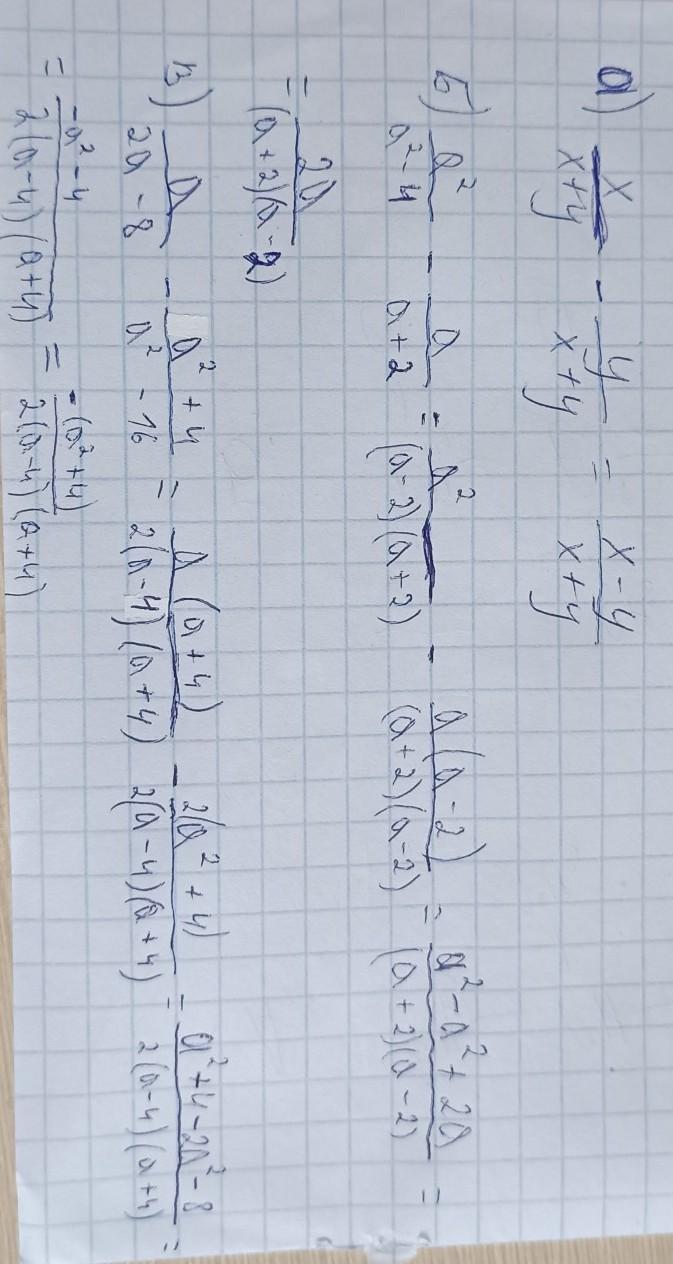 а) x/(x+y) - y/(x+y) = (x-y)/(x+y)
б) a²/(a²-4) - a/(a+2) = a²/((a-2)(a+2)) - a(a-2)/((a+2)(a-2)) = (a²-a²+2a)/((a+2)(a-2)) =
= 2a/((a+2)(a-2))
в) a/(2a-8) - (a²+4)/(a²-16) = a(a+4)/(2(a-4)(a+4)) - 2(a²+4)/(2(a-4)(a+4)) = (a²+4-2a²-8)/(2(a-4)(a+4)) =
= (-a²-4)/(2(a-4)(a+4)) = -(a²+4)/(2(a-4)(a+4))